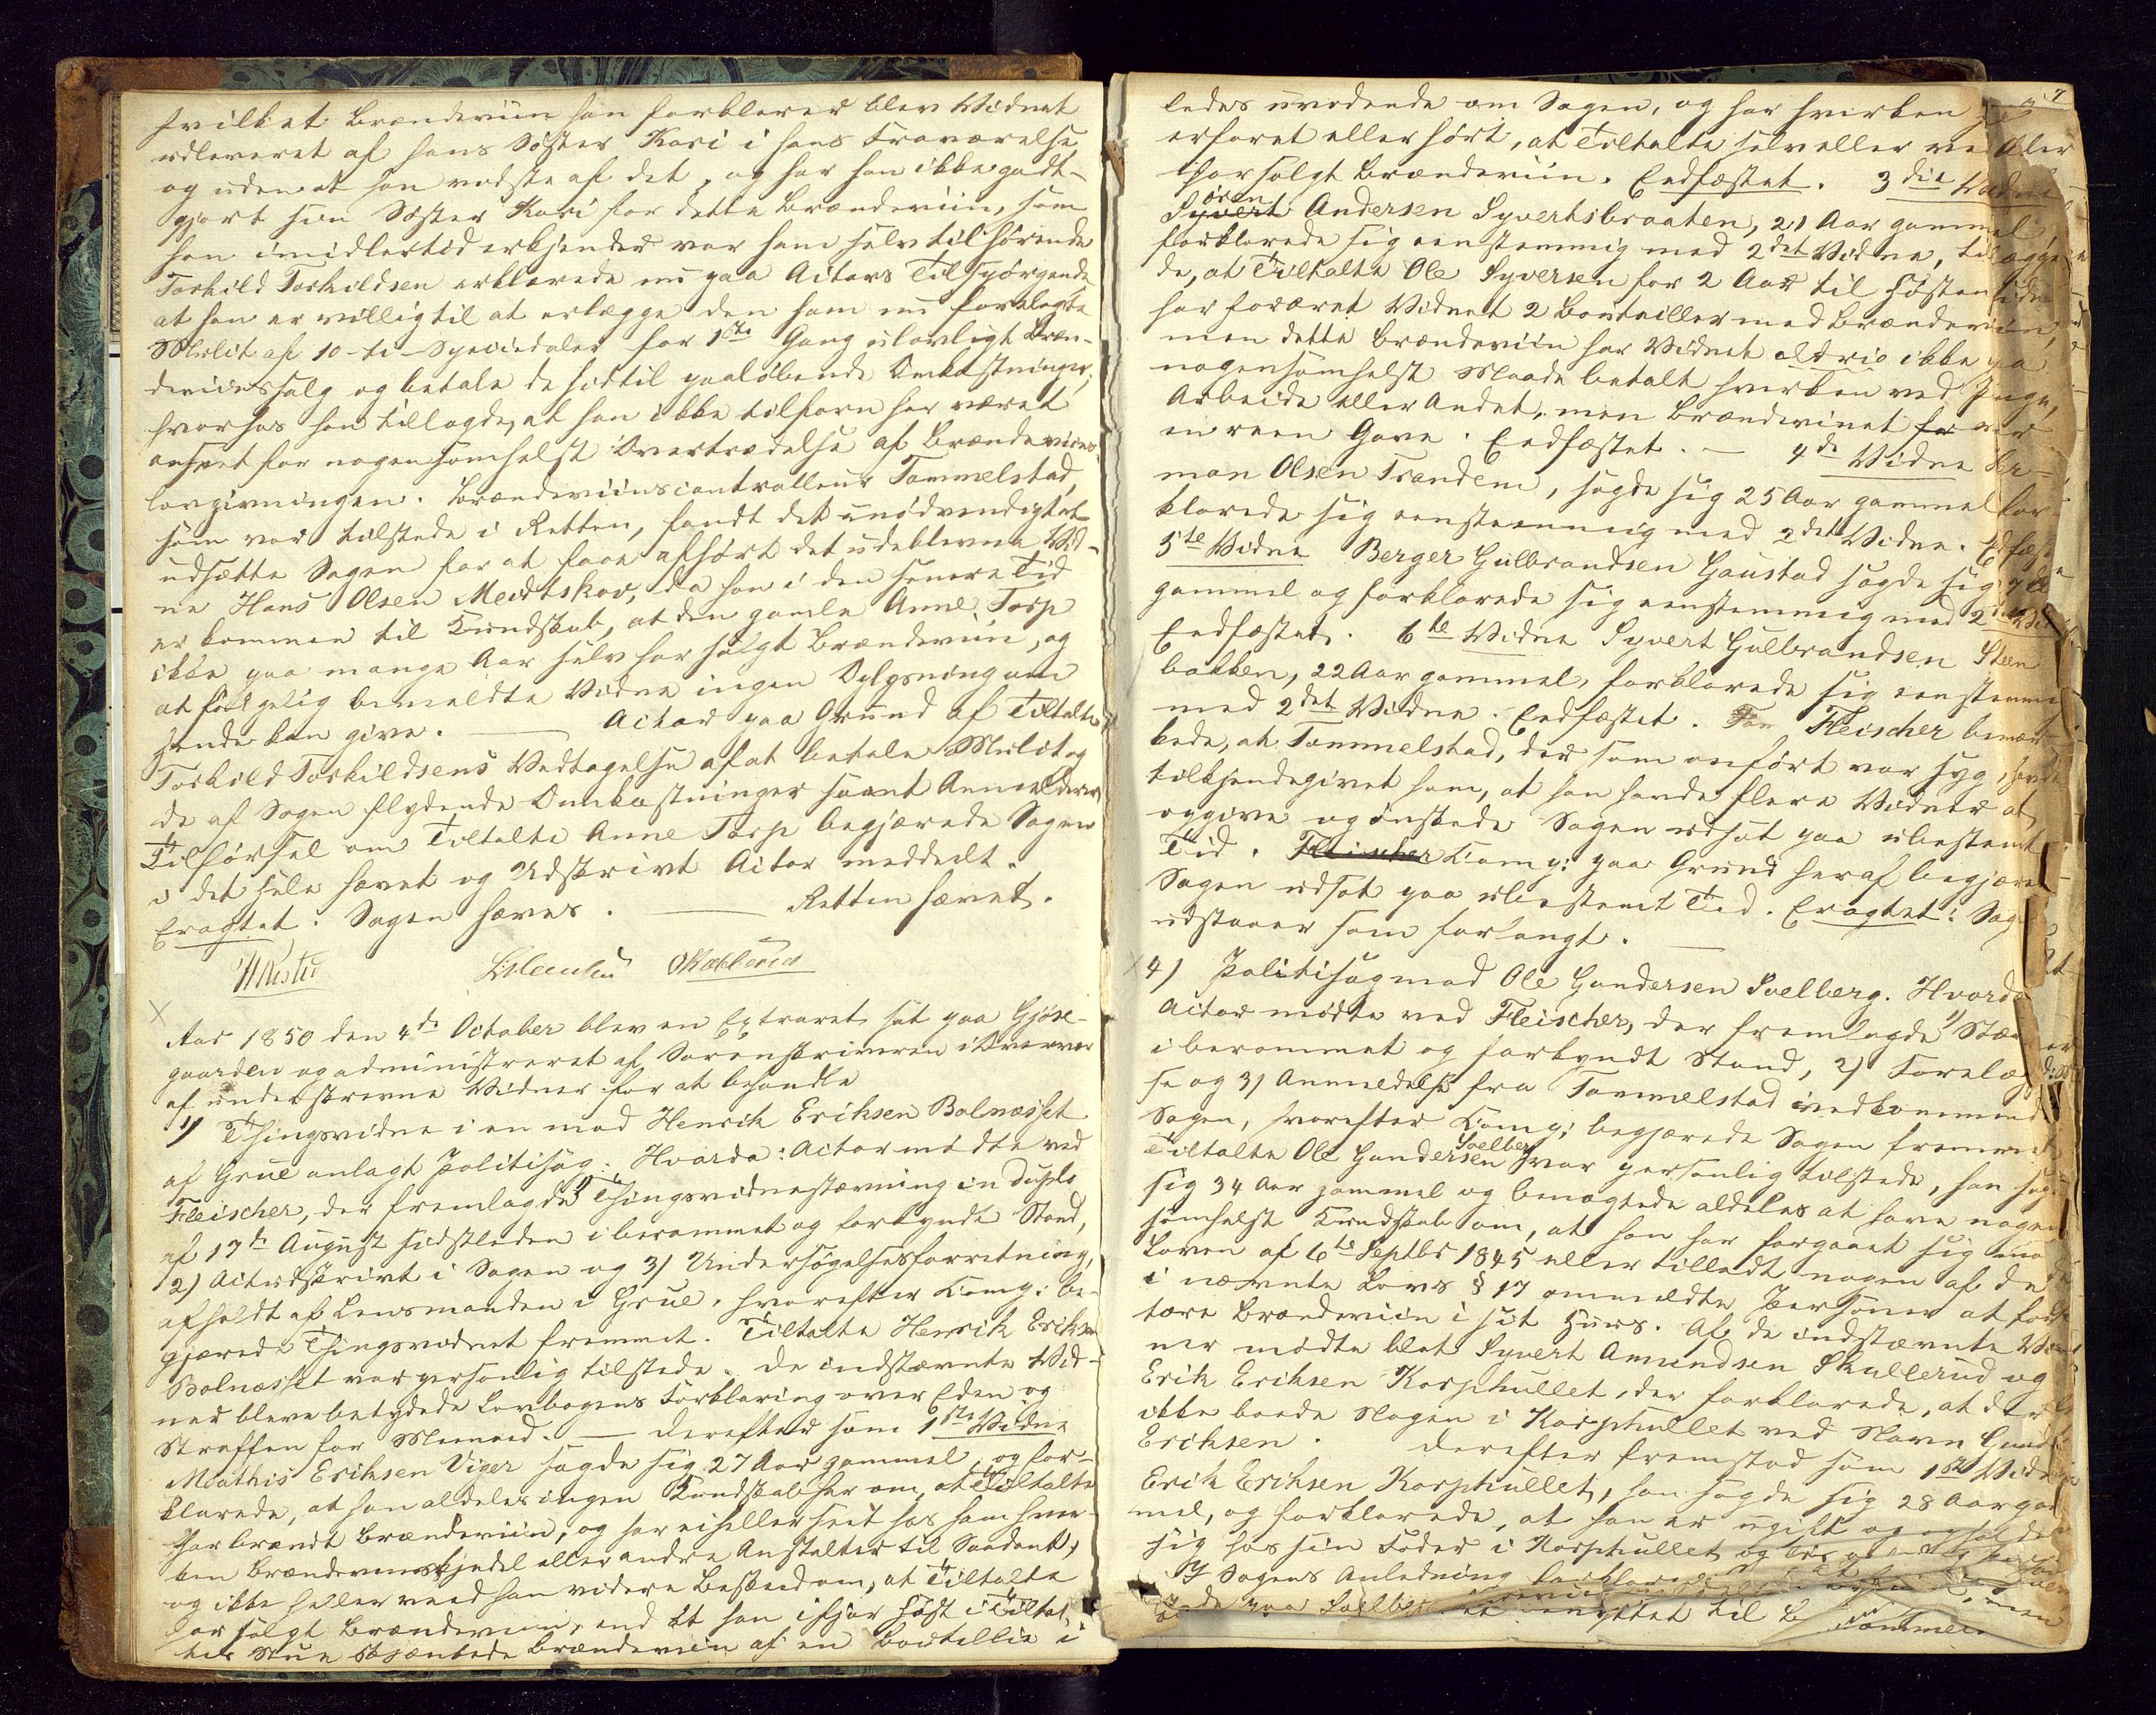 hvilket Brændeviin han forklarer blev Vidnet
udleveret af hans Søster Kari i hans Fraværelse
og uden at han vidste af det, og har han ikke godt-
gjort sin Søster Kari for dette Brændeviin, som
han imidlertid erkjender var ham selv tilhørende
Torkild Torkildsen erklærede nu paa Actors Tilspørgende
at han er villig til at erlægge den ham nu forelagte
Mulct af 10-ti-Speciedaler for 1ste Gang ulovligt Bræn-
deviinssalg og betale de hidtil paaløbende Omkostninger,
hvorhos han tillagde, at han ikke tilforn har været
anseet for nogensomhelst Overtrædelse af Brændeviins-
lovgivningen. Brændeviinscontrolleur Tommelstad,
som var tilstede i Retten, fandt det unødvendigt at
udsætte Sagen for at faae afhørt det udeblevne Vid-
ne Hans Olsen Meidtskov, da han i den senere Tid
er kommen til Kundskab, at den gamle Anne Torp
ikke paa mange Aar selv har solgt Brændeviin, og
at følgelig bemeldte Vidne ingen Oplysning om
hende kan give. — Actor paa Grund af Tiltalte
Torkild Torkildsens Vedtagelse af at betale Mulct og
de af Sagen flydende Omkostninger samt Anmelderens
Tilførsel om Tiltalte Anne Torp begjærede Sagen
i det hele hævet og Udskrivt Actor meddeelt.
Eragtet: Sagen hæves. — Retten hævet.
Aar 1850 den 4de October blev en Extraret sat paa Gjøse-
gaarden og administreret af Sorenskriveren i Overvær
af underskrevne Vidner for at behandle
1) Thingsvidne i en mod Henrik Eriksen Bolnæsset
af Grue anlagt Politisag: Hvorda: Actor mødte ved
Fleischer, der fremlagde 1) Thingsvidnestævning in duplo
af 17de August sidstleden i berammet og forkyndt Stand,
2) Actudskrivt i Sagen og 3) Undersøgelsesforretning,
afholdt af Lensmanden i Grue, hvorefter Comp: be-
gjærede Thingsvidnet fremmet. Tiltalte Henrik Eriksen
Bolnæsset var personlig tilstede. De indstævnte Vid-
ner bleve betydede Lovbogens Forklaring over Eden og
Straffen for Meeneed. — Derefter som 1ste Vidne
Mathis Eriksen Viger sagde sig 27 Aar gammel, og for-
klarede, at han aldeles ingen Kundskab har om, at Tiltalte
har brændt Brændeviin, og har ei heller seet hos ham hver-
ken Brændeviinskjedel eller andre Anstalter til Saadant,
og ikke heller veed han videre Beskeed om, at Tiltalte
har solgt Brændeviin, end at han ifjor Høst i Tiltal-
tes Stue skjænkede Brændeviin af en Bouteillie i
7
ledes uvidende om Sagen, og har hverken
erfaret eller hørt, at Tiltalte selv eller ved Aler
har solgt Brændeviin. Eedfæstet. 3die Vidne
Syvert ören Andersen Syvertsbraaten, 21 Aar gammel
forklarede sig eenstemmig med 2det Vidne, tillægge-
de, at Tiltalte Ole Syversen for 2 Aar til Høsten siden
har foræret Vidnet 2 Bouteiller med Brændeviin,
men dette Brændeviin har Vidnet aldrig ikke paa
nogensomhelst Maade betalt hverken ved Penge,
Arbeide eller Andet, men Brændevinet for var
en reen Gave. Eedfæstet. — 4de Vidne Her-
man Olsen Trandem, sagde sig 25 Aar gammel for-
klarede sig eenstemmig med 2det Vidne. Edfæst
5te Vidne Berger Gulbrandsen Gaustad sagde sig
gammel og forklarede sig eenstemmig med 2det Vid
Eedfæstet. 6te Vidne Syvert Gulbrandsen Steen
bakken, 22 Aar gammel, forklarede sig eenstemmi
med 2det Vidne. Eedfæstet. Fleischer bemær
kede, at Tommelstad, der som anført var syg, havde
tilkjendegivet ham, at han havde flere Vidner at
opgive og ønskede Sagen udsat paa ubestemt
Tid. Fleischer Comp: paa Grund heraf begjære
Sagen udsat paa ubestemt Tid. Eragtet: Sag
udstaaer som forlangt. —
4) Politisag mod Ole Gundersen Soelberg. Hvorda
Actor mødte ved Fleischer, der fremlagde 1) Stæv
i berammet og forkyndt Stand, 2) Forelæg
se og 3) Anmeldelse fra Tommelstad vedkommende
Sagen, hvorefter Comp: begjærede Sagen fremmet
Tiltalte Ole Gundersen Soelberg var personlig tilstede, han sag
sig 34 Aar gammel og benægtede aldeles at have nogen
somhelst Kundskab om, at han har forgaaet sig mod
Loven af 6te Septbr 1845 eller tilladt nogen af de
i nævnte Lovs § 17 ommeldte Personer at for
tære Brændeviin i sit Huus. Af de indstævnte Vid
ner mødte blot Syvert Amundsen Skullerud og
Erik Eriksen Korphullet, der forklarede, at der
ikke boede Nogen i Korphullet ved Navn Gund
Eriksen. Derefter fremstod som 1ste Vidne
Erik Eriksen Korphullet, han sagde sig 28 Aar gam
mel, og forklarede, at han er ugift og opholder
sig hos sin Fader i Korphullet og
I Sagens Anledning forklarede
paa Soelberg benyttet til